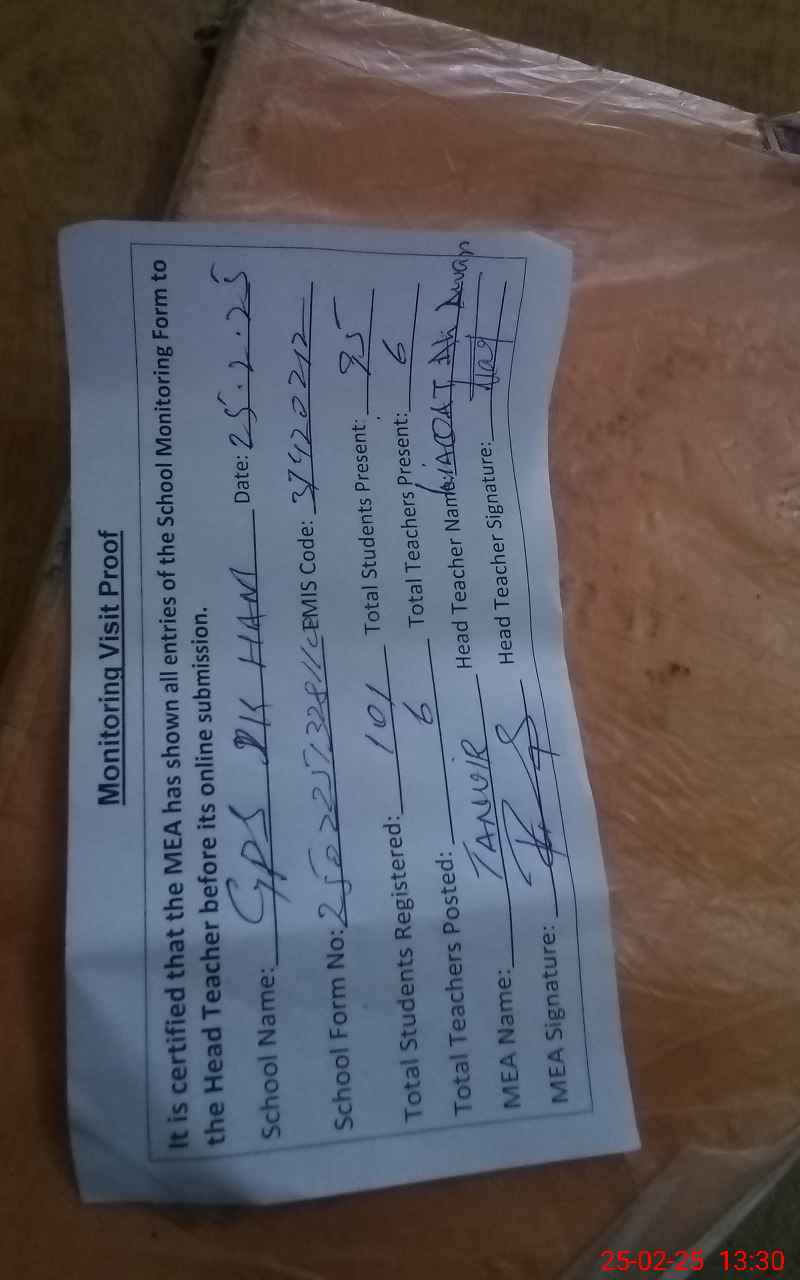 Monitoring Visit Proof
It is certified that the MEA has shown all entries of the School Monitoring Form to
the Head Teacher before its online submission.
School Name: GPS DK HAM Date: 25.2.25
School Form No: EMIS Code: 37420212
Total Students Registered: 101 Total Students Present: 95
Total Teachers Posted: 6 Total Teachers Present: 6
MEA Name: TANVIR Head Teacher Name: LIAQAT Ali Awan
MEA Signature: Head Teacher Signature:
25-02-25 13:30